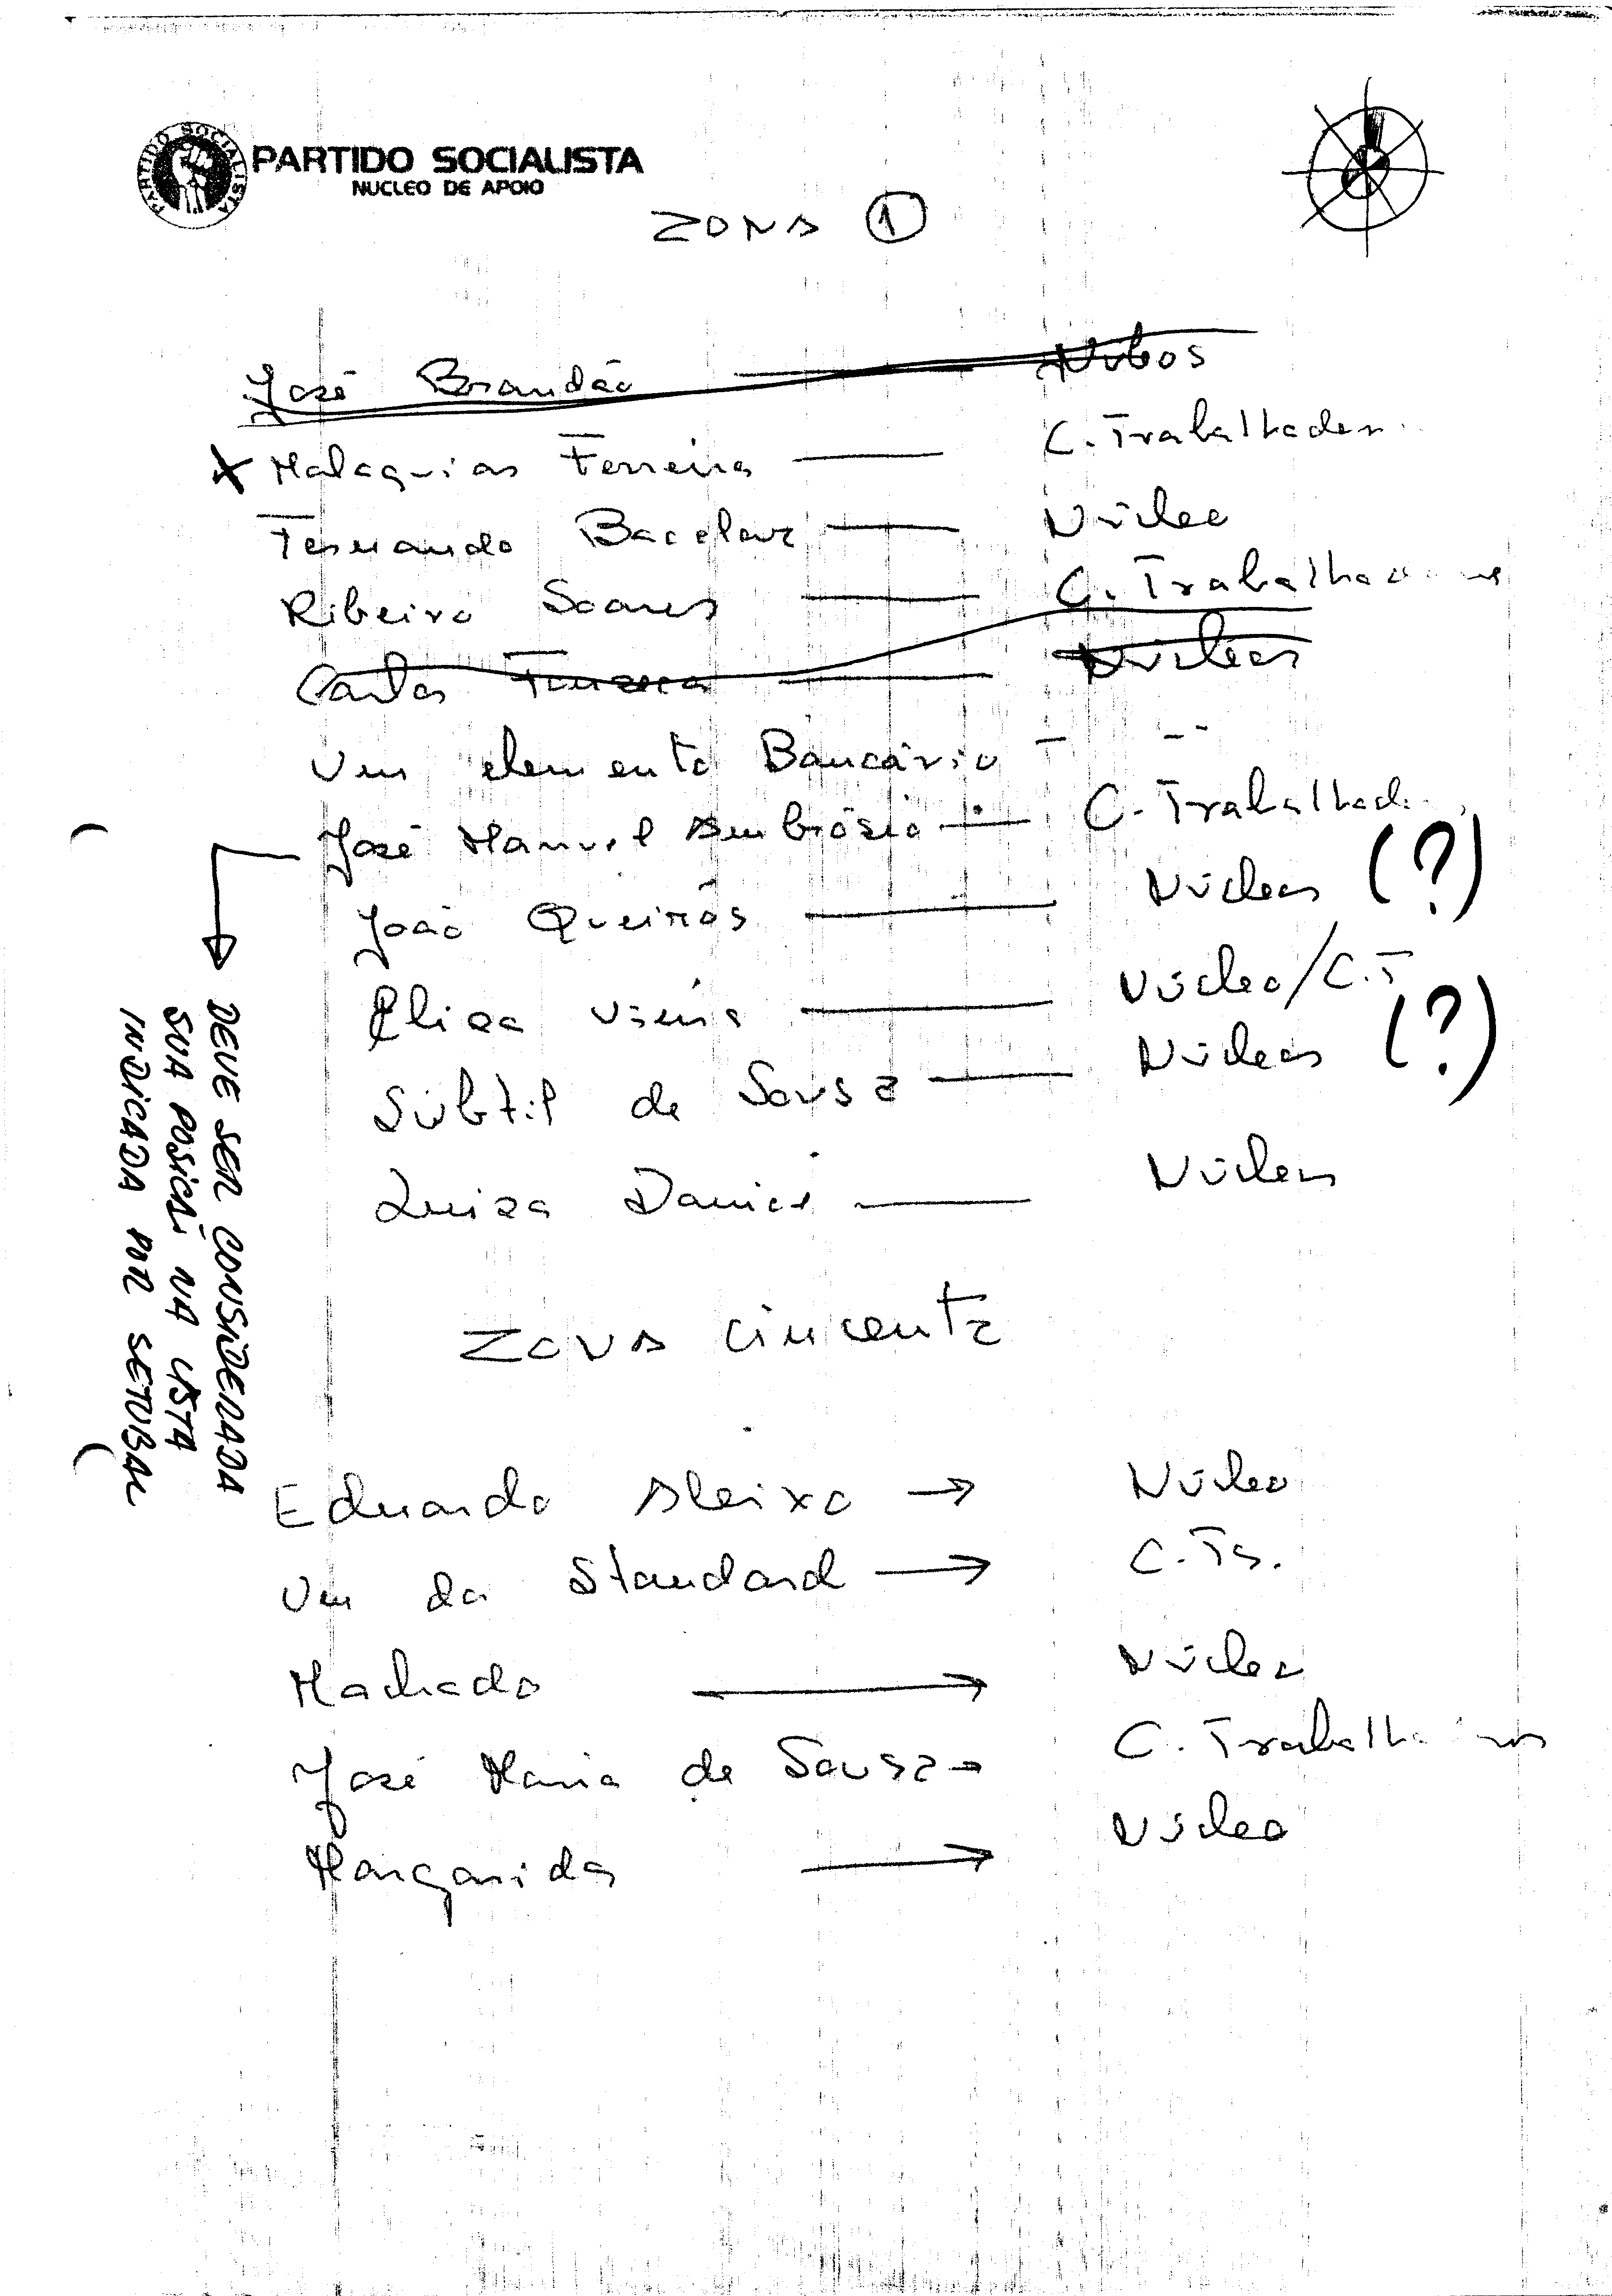 PARTIDO SOCIALISTA
PARTIDO SOCIALISTA
NUCLEO DE APOIO
ZONA 1
José Brandão — Núcleos
x Malaquias Ferreira — C. Trabalhador
Fernando Bacelar — Núcleo
Ribeiro Soares — C. Trabalhadores
Carlos Fonseca — Núcleos
Um elemento Bancário - --
José Manuel Ambrósio — C. Trabalhad
João Queirós — Núcleos (?)
Elisa — Núcleo/C.T
Súbtil de Sousa — Núcleos (?)
Luisa Daniel — Núcleos
DEVE SER CONSIDERADA
SUA POSIÇÃO NA LISTA
INDICADA POR SETUBAL
ZONA Cinzenta
Eduardo Aleixo → Núcleo
Um da Standard → C.Ts.
Machado → Núcleo
José Maria de Sousa → C. Trabalh
Margarida → Núcleo